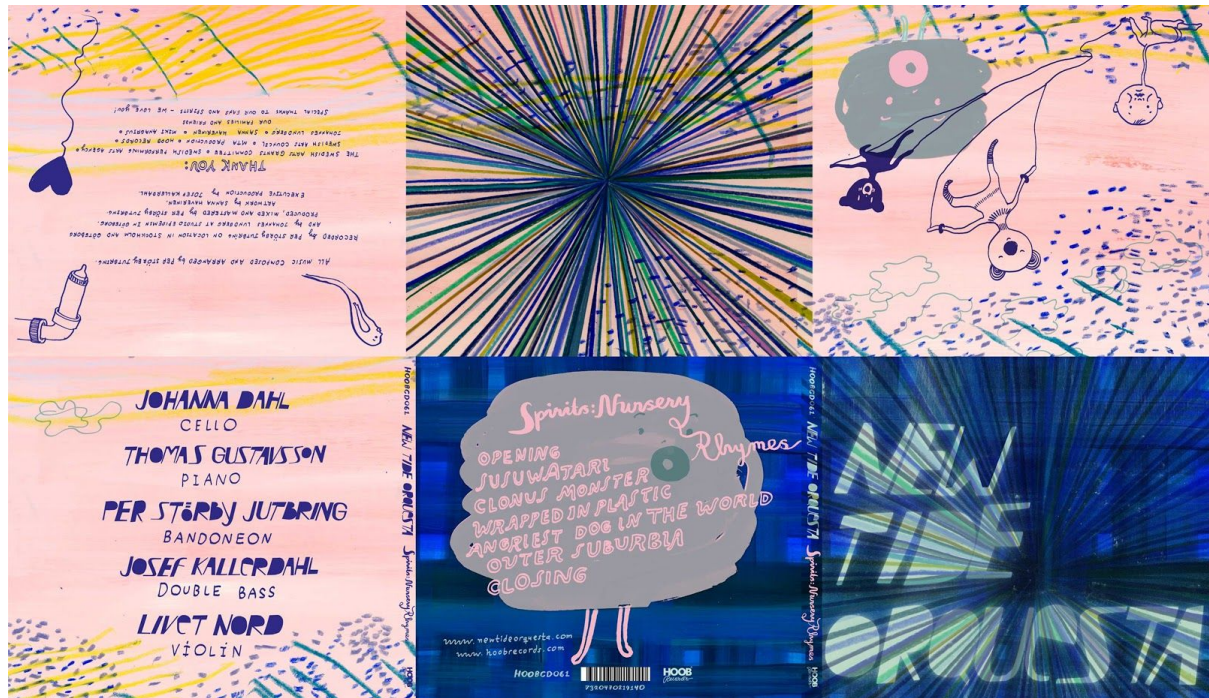 ALL MUSIC COMPOSED AND ARRANGED by PER STÖRBY JUTBRING.
RECORDED by PER STÖRBY JUTBRING ON LOCATION IN STOCKHOLM AND GÖTEBORG
AND by JOHANNES LUNDBERG AT STUDIO EPIDEMIN IN GÖTEBORG.
PRODUCED, MIXED AND MASTERED by PER STÖRBY JUTBRING.
ARTWORK by SANNA HAVERINEN.
EXECUTIVE PRODUCTION by JOSEF KALLERDAHL.
THANK YOU:
THE SWEDISH ARTS GRANTS COMMITTEE • SWEDISH PERFORMING ARTS AGENCY •
SWEDISH ARTS COUNCIL • MTA PRODUCTION • HOOB RECORDS •
JOHANNES LUNDBERG • SANNA HAVERINEN •
OUR FAMILIES AND FRIENDS
SPECIAL THANKS TO OUR FANS AND SPIRITS - WE LOVE YOU!
JOHANNA DAHL
CELLO
THOMAS GUSTAVSSON
PIANO
PER STÖRBY JUTBRING
BANDONEON
JOSEF KALLERDAHL
DOUBLE BASS
LIVET NORD
VIOLIN
HOOBCD061 NEW TIDE ORQUESTA Spirits:Nursery Rhymes HOOB
Spirits:Nursery
Rhymes
OPENING
SUSUWATARI
CLONUS MONSTER
WRAPPED IN PLASTIC
ANGRIEST DOG IN THE WORLD
OUTER SUBURBIA
CLOSING
www.newtideorquesta.com
www.hoobrecords.com
HOOBCD061
7320470219140
HOOB
Records
HOOBCD061 NEW TIDE ORQUESTA Spirits:Nursery Rhymes HOOB
NEW
TIDE
ORQUESTA